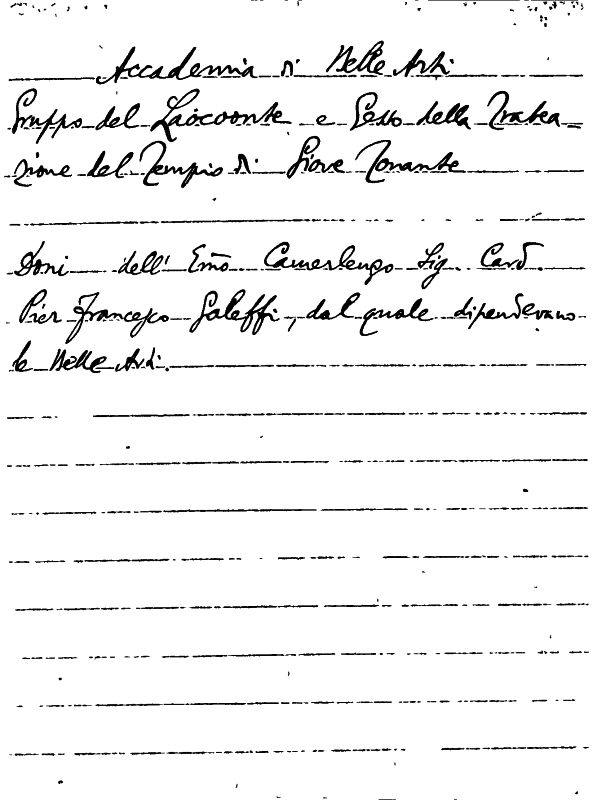 Accademia di Belle Arti
Gruppo del Laocoonte e Gesso della Trabea=
zione del Tempio di Giove Tonante
Doni dell' Emo. Camerlengo Sig. Card.
Pier Francesco Galeffi, dal quale dipendevano
le Belle Arti.